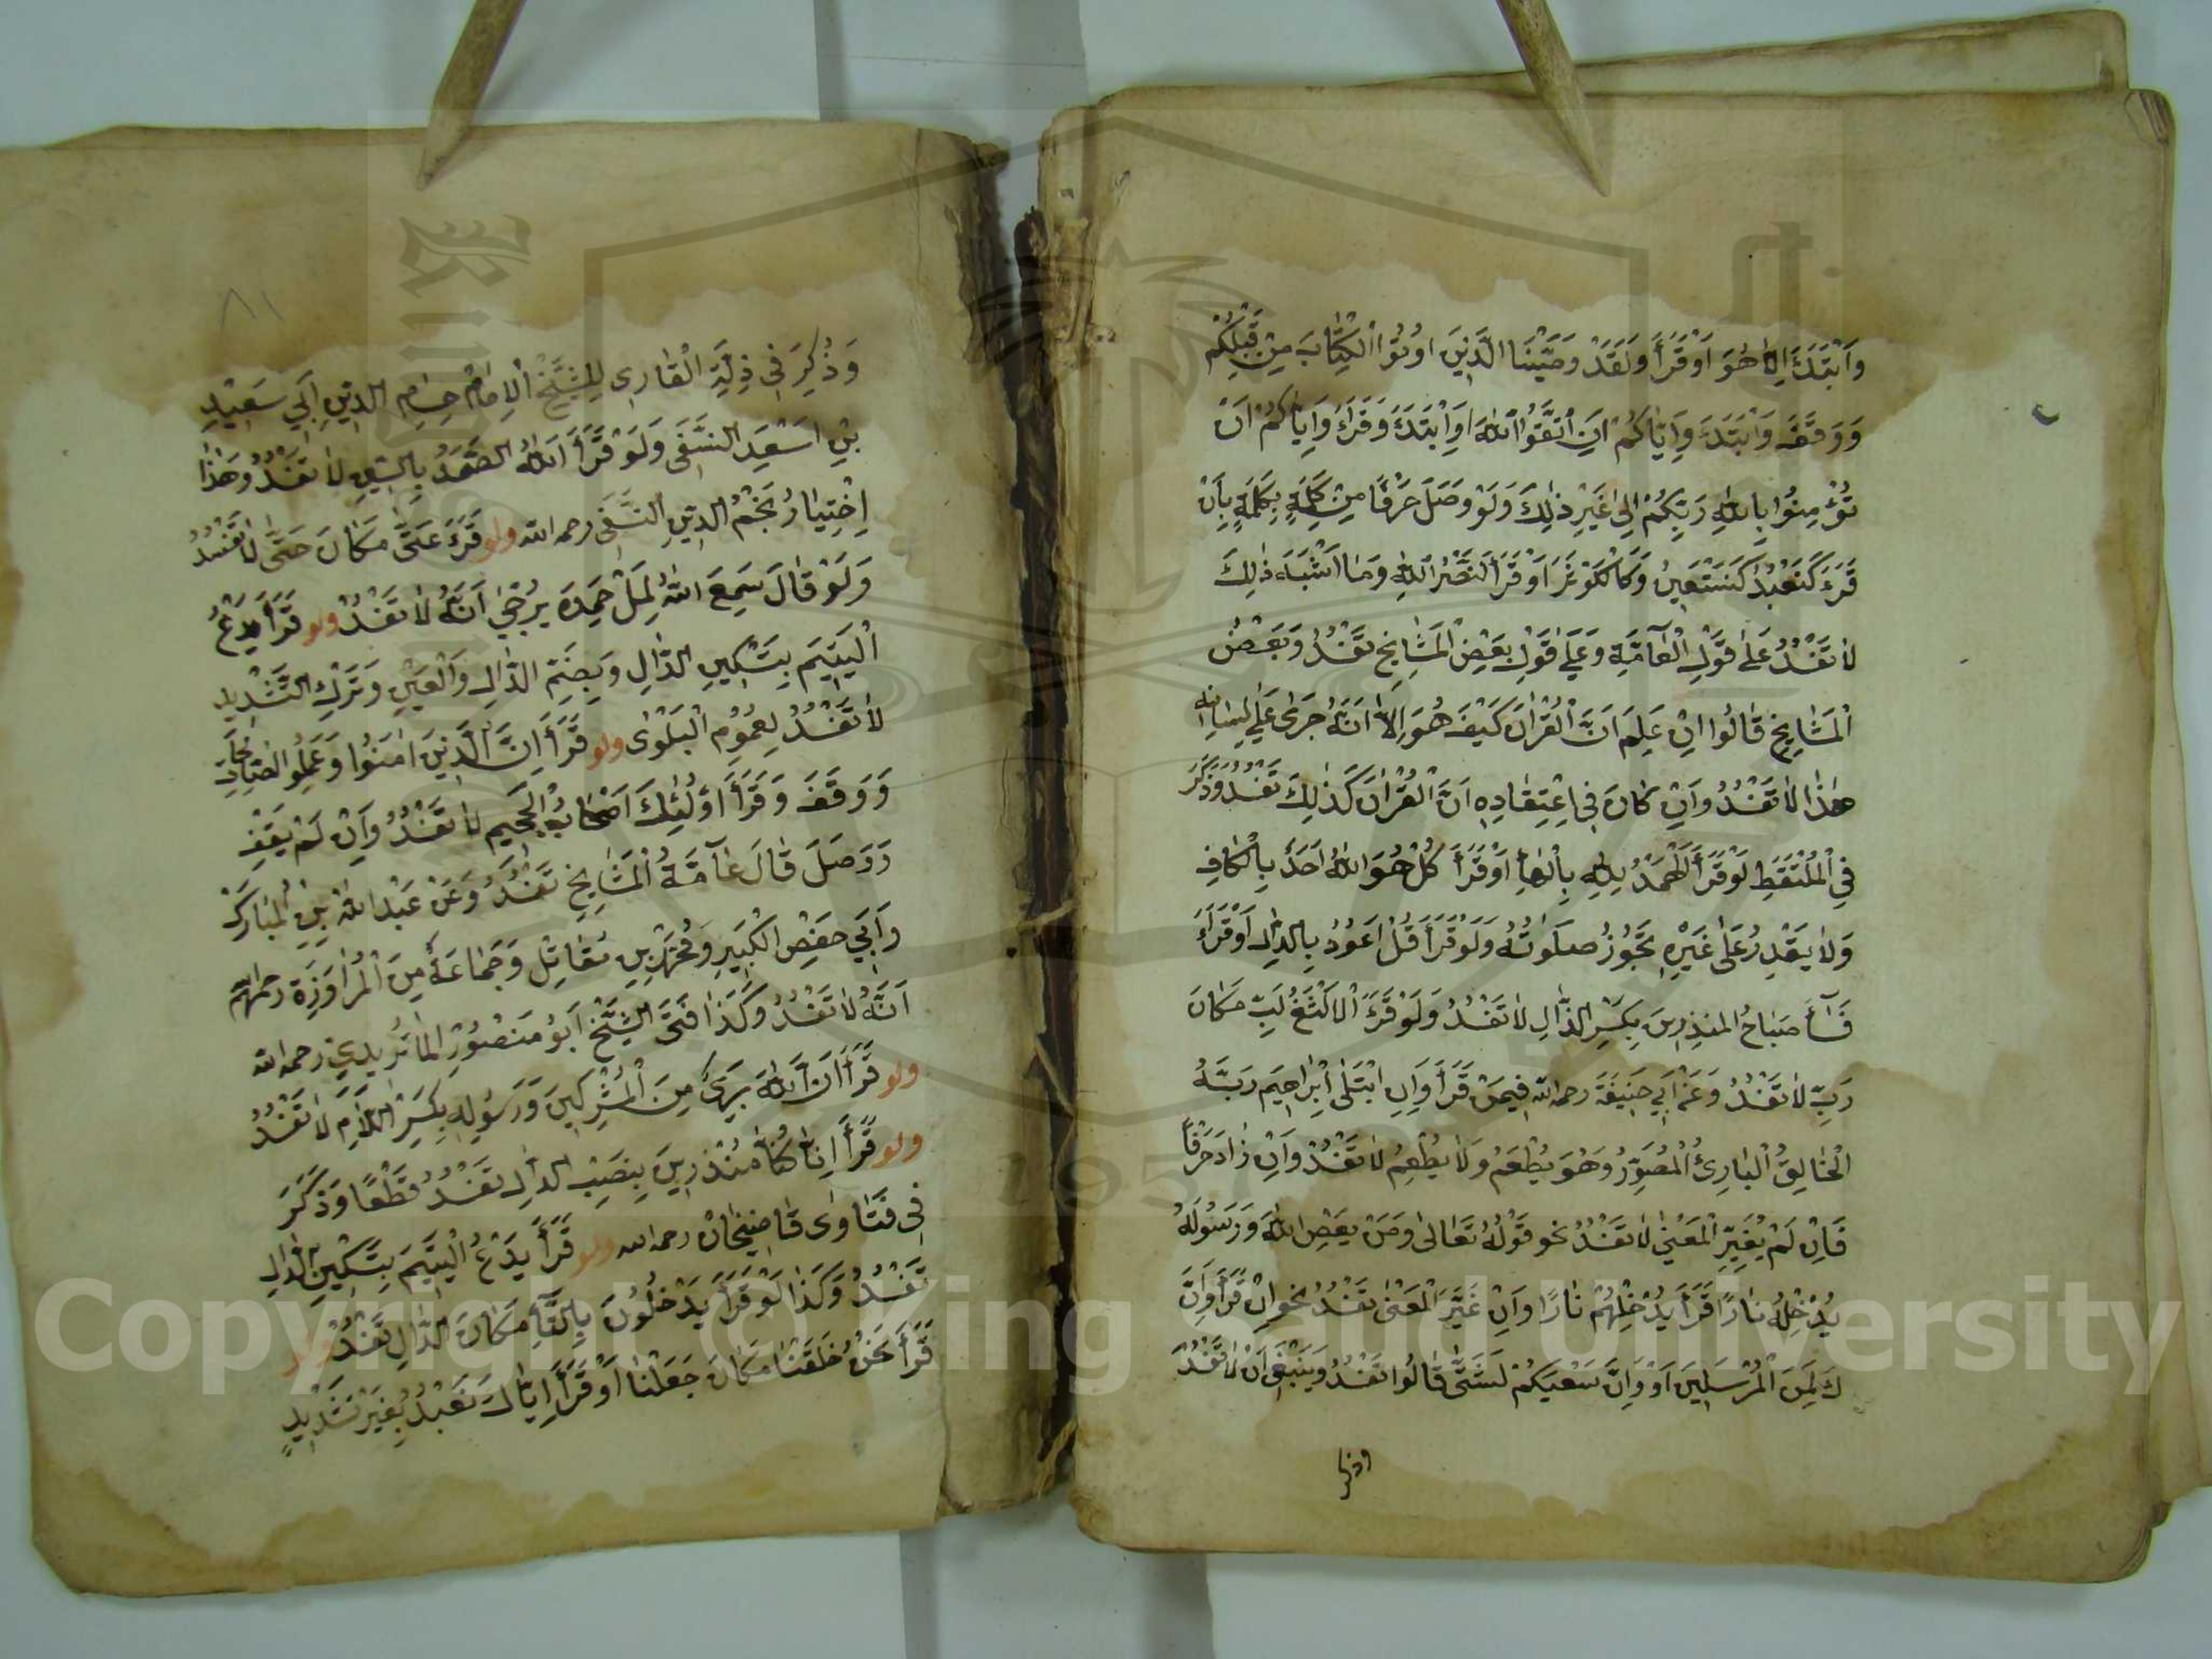 وَابْتَدَءَ اِلَّا هُوَ اَوْ قَرَأَ وَلَقَدْ وَصَّيْنَا الَّذِينَ اُوتُوا الْكِتَابَ مِنْ قَبْلِكُمْ
وَوَقَفَ وَابْتَدَءَ وَاِيَّاكُمْ اَنِ اتَّقُوا اللهَ اَوِ ابْتَدَءَ وَقَرَأَ وَاِيَّاكُمْ اَنْ
تُؤْمِنُوا بِاللهِ رَبِّكُمْ اِلٰى غَيْرِ ذٰلِكَ وَلَوْ وَصَلَ حَرْفًا مِنْ كَلِمَةٍ بِكَلِمَةٍ بِاَنْ
قَرَءَ كَنَعْبُدُ كَنَسْتَعِينُ وَكَالْكَوْثَرَ اَوْ قَرَأَ لَنَصْرُ اللهِ وَمَا اَشْبَهَ ذٰلِكَ
لَا تَفْسُدُ عَلٰى قَوْلِ الْعَامَّةِ وَعَلٰى قَوْلِ بَعْضِ الْمَشَايِخِ تَفْسُدُ وَبَعْضُ
الْمَشَايِخِ قَالُوا اِنْ عَلِمَ اَنَّ الْقُرْاٰنَ كَيْفَ هُوَ اِلَّا اَنَّهُ جَرٰى عَلٰى لِسَانِهِ
هٰذَا لَا تَفْسُدُ وَاِنْ كَانَ فِى اِعْتِقَادِهِ اَنَّ الْقُرْاٰنَ كَذٰلِكَ تَفْسُدُ وَذَكَرَ
فِى الْمُلْتَقَطِ لَوْ قَرَأَ اَلْهَمْدُ لِلّٰهِ بِالْهَاءِ اَوْ قَرَأَ كُلْ هُوَ اللهُ اَحَدٌ بِالْكَافِ
وَلَا يَقْدِرُ عَلٰى غَيْرِهِ تَجُوزُ صَلٰوتُهُ وَلَوْ قَرَأَ قُلْ اَعُودُ بِالدَّالِ اَوْ قَرَأَ
فَسَاءَ صَبَاحُ المنذِرِينَ بِكَسْرِ الذَّالِ لَا تَفْسُدُ وَلَوْ قَرَءَ الْاَلْثَغُ لَبِّ مَكَانَ
رَبِّ لَا تَفْسُدُ وَعَنْ اَبِي حَنِيفَةَ رحمه الله فِيمَنْ قَرَأَ وَاِذِ ابْتَلٰى اِبْرَاهِيمَ رَبَّهُ
الْخَالِقُ الْبَارِئُ الْمُصَوِّرُ وَهُوَ يُطْعَمُ وَلَا يُطْعِمُ لَا تَفْسُدُ وَاِنْ زَادَ حَرْفًا
فَاِنْ لَمْ يُغَيِّرِ الْمَعْنٰى لَا تَفْسُدُ نحو قَوْلُهُ تَعَالٰى وَمَنْ يَعْصِ اللهَ وَرَسُولَهُ
يُدْخِلْهُ نَارًا قَرَأَ يُدْخِلْهُمْ نَارًا وَاِنْ غَيَّرَ الْمَعْنٰى تَفْسُدُ نَحْوَ اِنْ قَرَأَ وَاِنَّ
كَ لَمِنَ الْمُرْسَلِينَ اَوْ وَاِنَّ سَعْيَكُمْ لَشَتّٰى قَالُوا تَفْسُدُ وَيَنْبَغِى اَنْ لَا تَفْسُدَ
٨١
وَذُكِرَ فِى ذِلَّةِ الْقَارِى لِلشَّيْخِ الْاِمَامِ حِسَامِ الدِّينِ اَبِي سَعِيدِ
بْنِ اَسْعَدَ النَّسَفِى وَلَوْ قَرَأَ اَللهُ الصَّمَدُ بِالسِّينِ لَا تَفْسُدُ وَهٰذَا
اِخْتِيَارُ نَجْمُ الدِّينِ النَّسَفِى رحمه الله ولو قَرَءَ عَتّٰى مَكَانَ حَتّٰى لَا تَفْسُدُ
وَلَوْ قَالَ سَمِعَ اللهُ لِمَلْ حَمِدَهُ يُرْجٰى اَنَّهُ لَا تَفْسُدُ ولو قَرَأَ يَدْعُ
الْيَتِيمَ بِتَسْكِينِ الدَّالِ وَبِضَمِّ الدَّالِ وَالْعَيْنِ وَتَرْكِ التَّشْدِيدِ
لَا تَفْسُدُ لِعُمُومِ الْبَلْوٰى ولو قَرَأَ اِنَّ الَّذِينَ اٰمَنُوا وَعَمِلُوا الصَّالِحَاتِ
وَوَقَفَ وَقَرَأَ اُولٰئِكَ اَصْحَابُ الْجَحِيمِ لَا تَفْسُدُ وَاِنْ لَمْ يَقِفْ
وَوَصَلَ قَالَ عَامَّةُ الْمَشَايِخِ تَفْسُدُ وَعَنْ عَبْدِ اللهِ بْنِ الْمُبَارَكِ
وَاَبِي حَفْصِ الْكَبِيرِ وَمُحَمَّدِ بْنِ مُقَاتِلٍ وَجَمَاعَةٌ مِنَ الْمَرَاوَزَةِ رحمهم الله
اَنَّهُ لَا تَفْسُدُ وَكَذَا فَتٰى الشَّيْخِ اَبُو مَنْصُورُ الْمَاتُرِيدِي رحمه الله
ولو قَرَأَ اَنَّ اللهَ بَرِىءٌ مِنَ الْمُشْرِكِينَ وَرَسُولِهِ بِكَسْرِ اللَّامِ لَا تَفْسُدُ
ولو قَرَأَ اِنَّا كُنَّا مُنْذَرِينَ بِنَصْبِ الذَّالِ تَفْسُدُ قَطْعًا وَذَكَرَ
فِى فَتَاوٰى قَاضِيخَانْ رحمه الله ولو قَرَأَ يَدْعُ الْيَتِيمَ بِتَسْكِينِ الدَّالِ
تَفْسُدُ وَكَذَا لَوْ قَرَأَ يَدْخُلُونَ بِالتَّاءِ مَكَانَ الدَّالِ تَفْسُدُ ولو
قَرَأَ نَحْنُ خَلَقْنَا مَكَانَ جَعَلْنَا اَوْ قَرَأَ اِيَّاكَ نَعْبُدُ بِغَيْرِ تَشْدِيدٍ
Copyright © King Saud University
1957